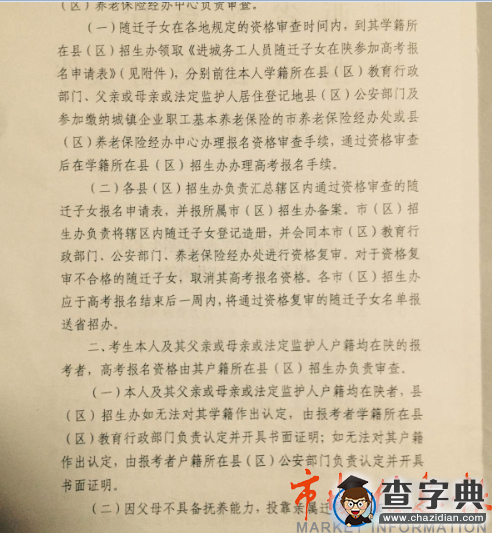 （区）养老保险经办中心负责审查。
（一）随迁子女在各地规定的资格审查时间内，到其学籍所
在县（区）招生办领取《进城务工人员随迁子女在陕参加高考报
名申请表》（见附件），分别前往本人学籍所在县（区）教育行政
部门、父亲或母亲或法定监护人居住登记地县（区）公安部门及
参加缴纳城镇企业职工基本养老保险的市养老保险经办处或县
（区）养老保险经办中心办理报名资格审查手续，通过资格审查
后在学籍所在县（区）招生办办理高考报名手续。
（二）各县（区）招生办负责汇总辖区内通过资格审查的随
迁子女报名申请表，并报所属市（区）招生办备案。市（区）招
生办负责将辖区内随迁子女登记造册，并会同本市（区）教育行
政部门、公安部门、养老保险经办处进行资格复审。对于资格复
审不合格的随迁子女，取消其高考报名资格。各市（区）招生办
应于高考报名结束后一周内，将通过资格复审的随迁子女名单报
送省招办。
二、考生本人及其父亲或母亲或法定监护人户籍均在陕的报
考者，高考报名资格由其户籍所在县（区）招生办负责审查。
（一）本人及其父亲或母亲或法定监护人户籍均在陕者，县
（区）招生办如无法对其学籍作出认定，由报考者学籍所在县
（区）教育行政部门负责认定并开具书面证明；如无法对其户籍
作出认定，由报考者户籍所在县（区）公安部门负责认定并开具
书面证明。
（二）因父母不具备抚养能力，投靠亲属迁
市
MARKET INFORMATION
查字典
www.chazidian.com